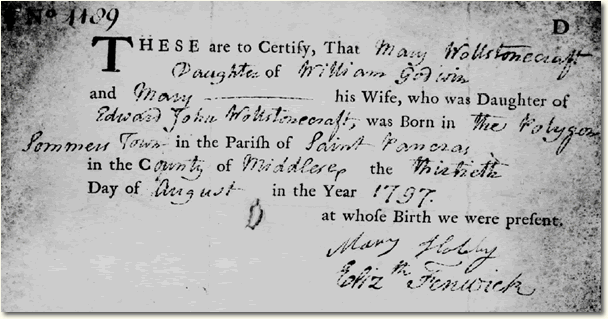 No 1189
D
THESE are to Certify, That Mary Wollstonecraft
Daughter of William Godwin
and Mary ——— his Wife, who was Daughter of
Edward John Wollstonecraft, was Born in the Polygon
Sommers Town in the Parish of Saint Pancras
in the County of Middlesex, the thirtieth
Day of August in the Year 1797.
at whose Birth we were present.
Mary
Eliz th Fenwick